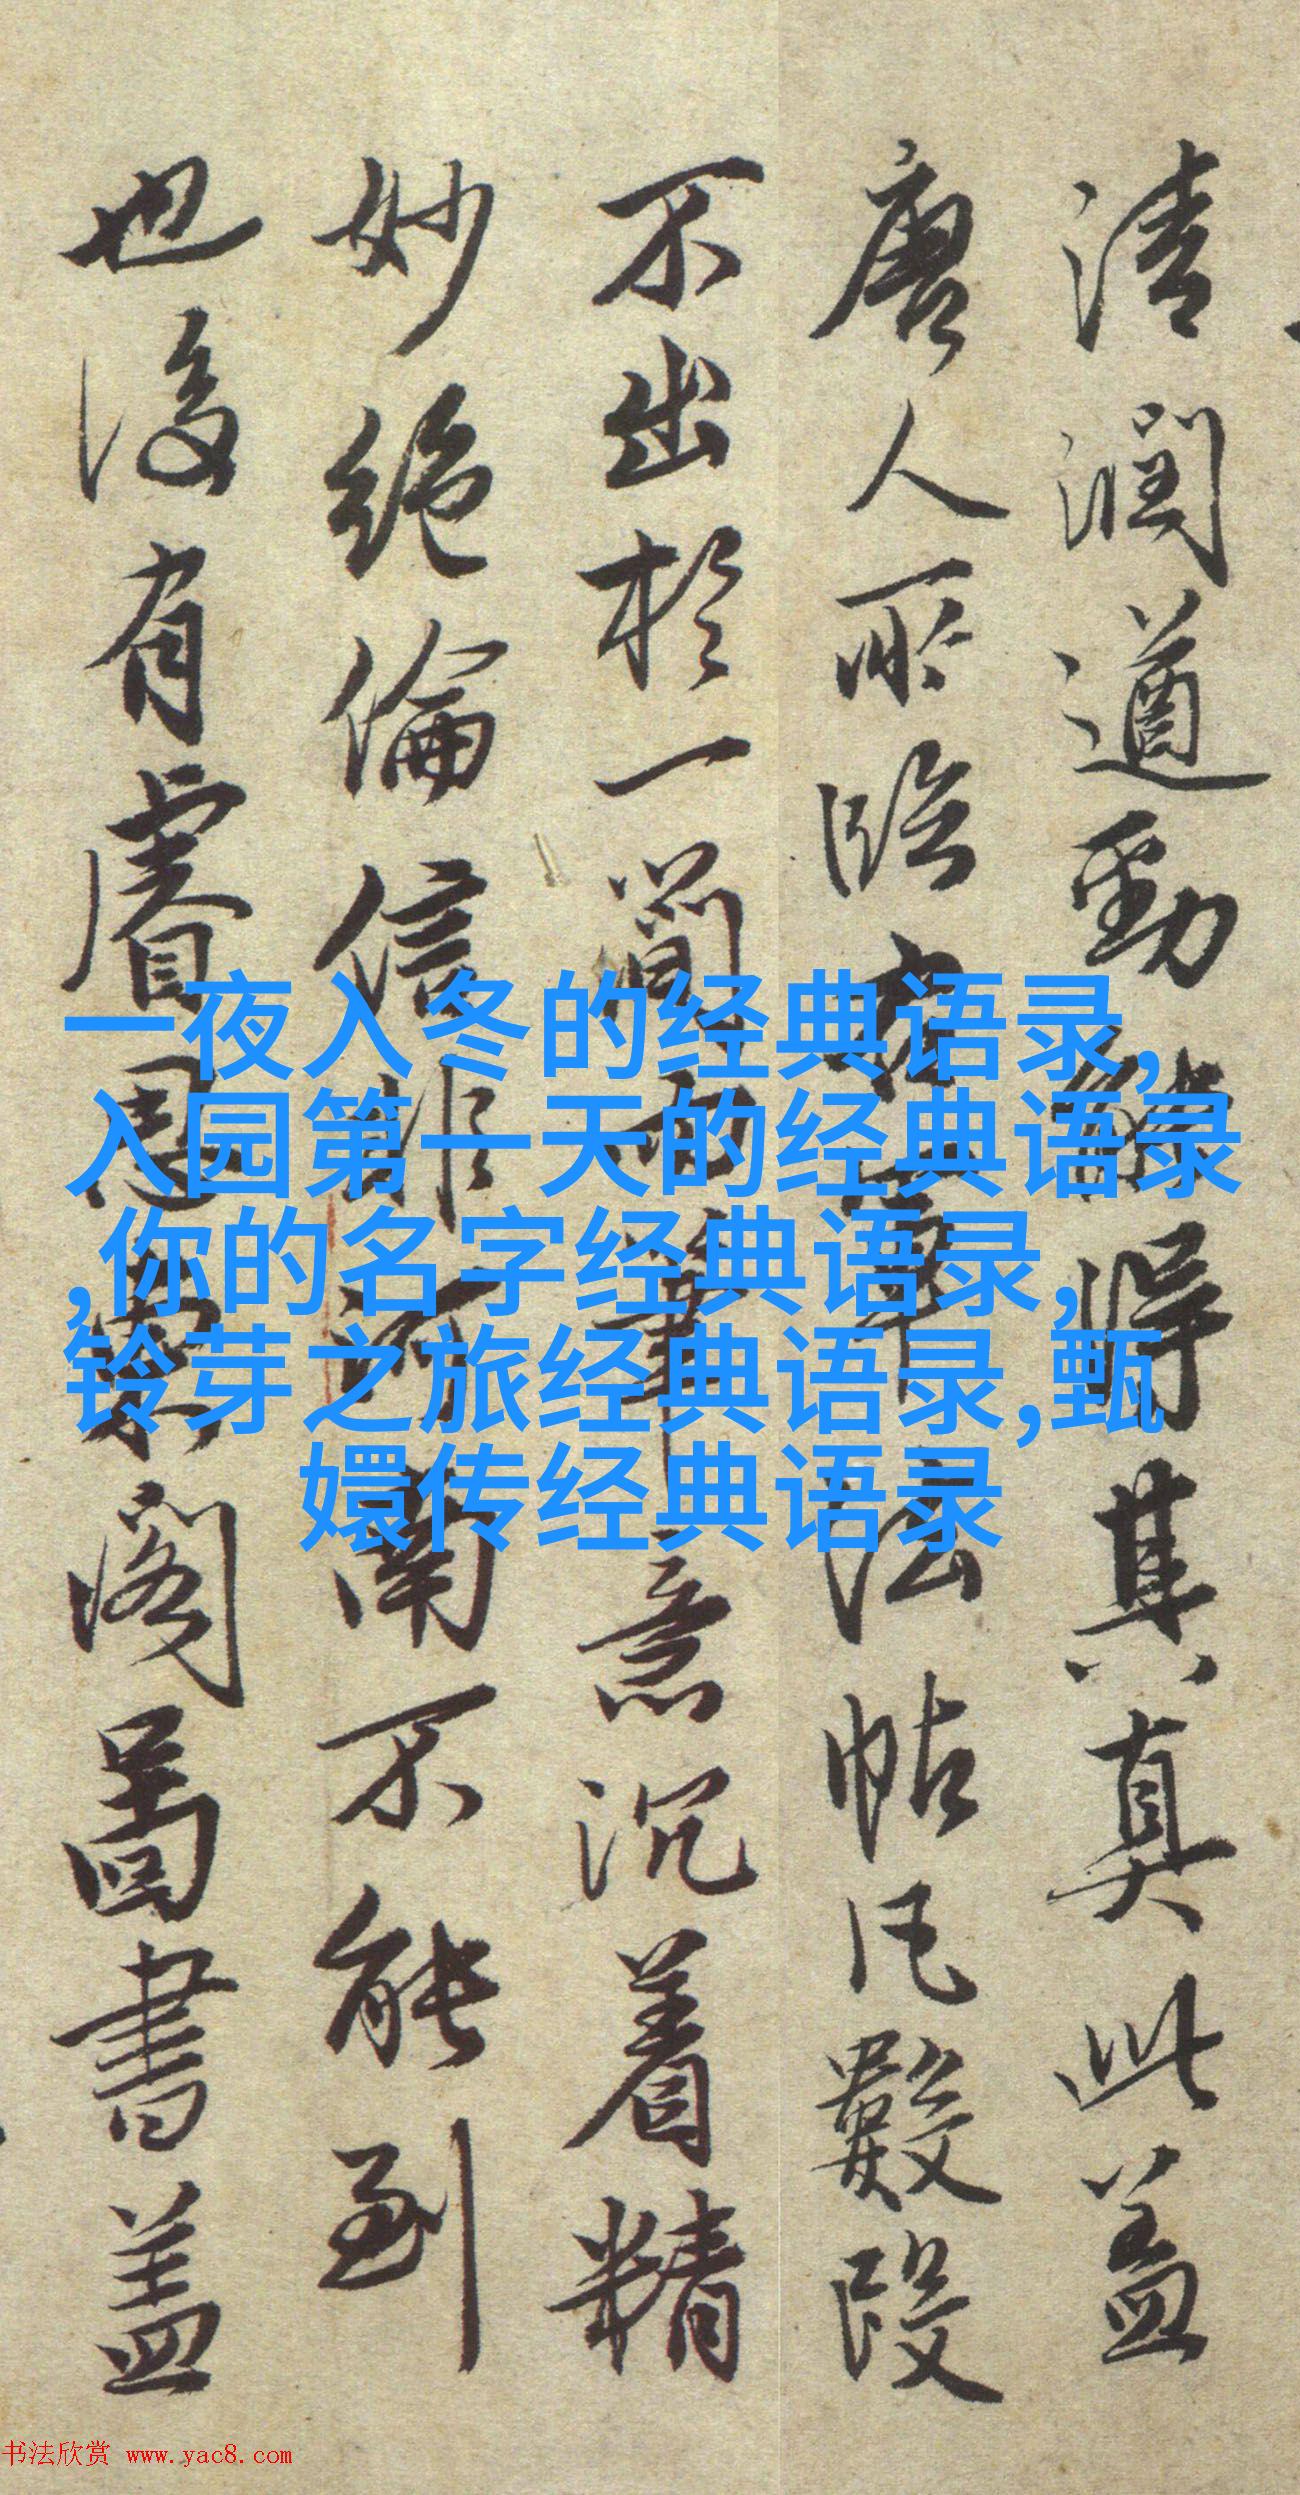 清潤遒勁能得其真此盖
唐人所临右軍法帖凡數段
不出於一簡而筆意沉着精
妙絶倫信非河南不能到
也後有睿思東閣圖書盖
一夜入冬的经典语录,
入园第一天的经典语录
,你的名字经典语录,
铃芽之旅经典语录,甄
嬛传经典语录
书法欣赏 www.yac8.com